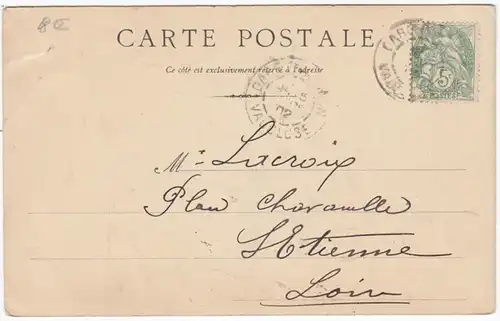 8E
CARTE POSTALE
Ce côté est exclusivement réservé à l'adresse
5
POSTES
Mr Lacroix
Plan Charavelle
St Etienne
Loire